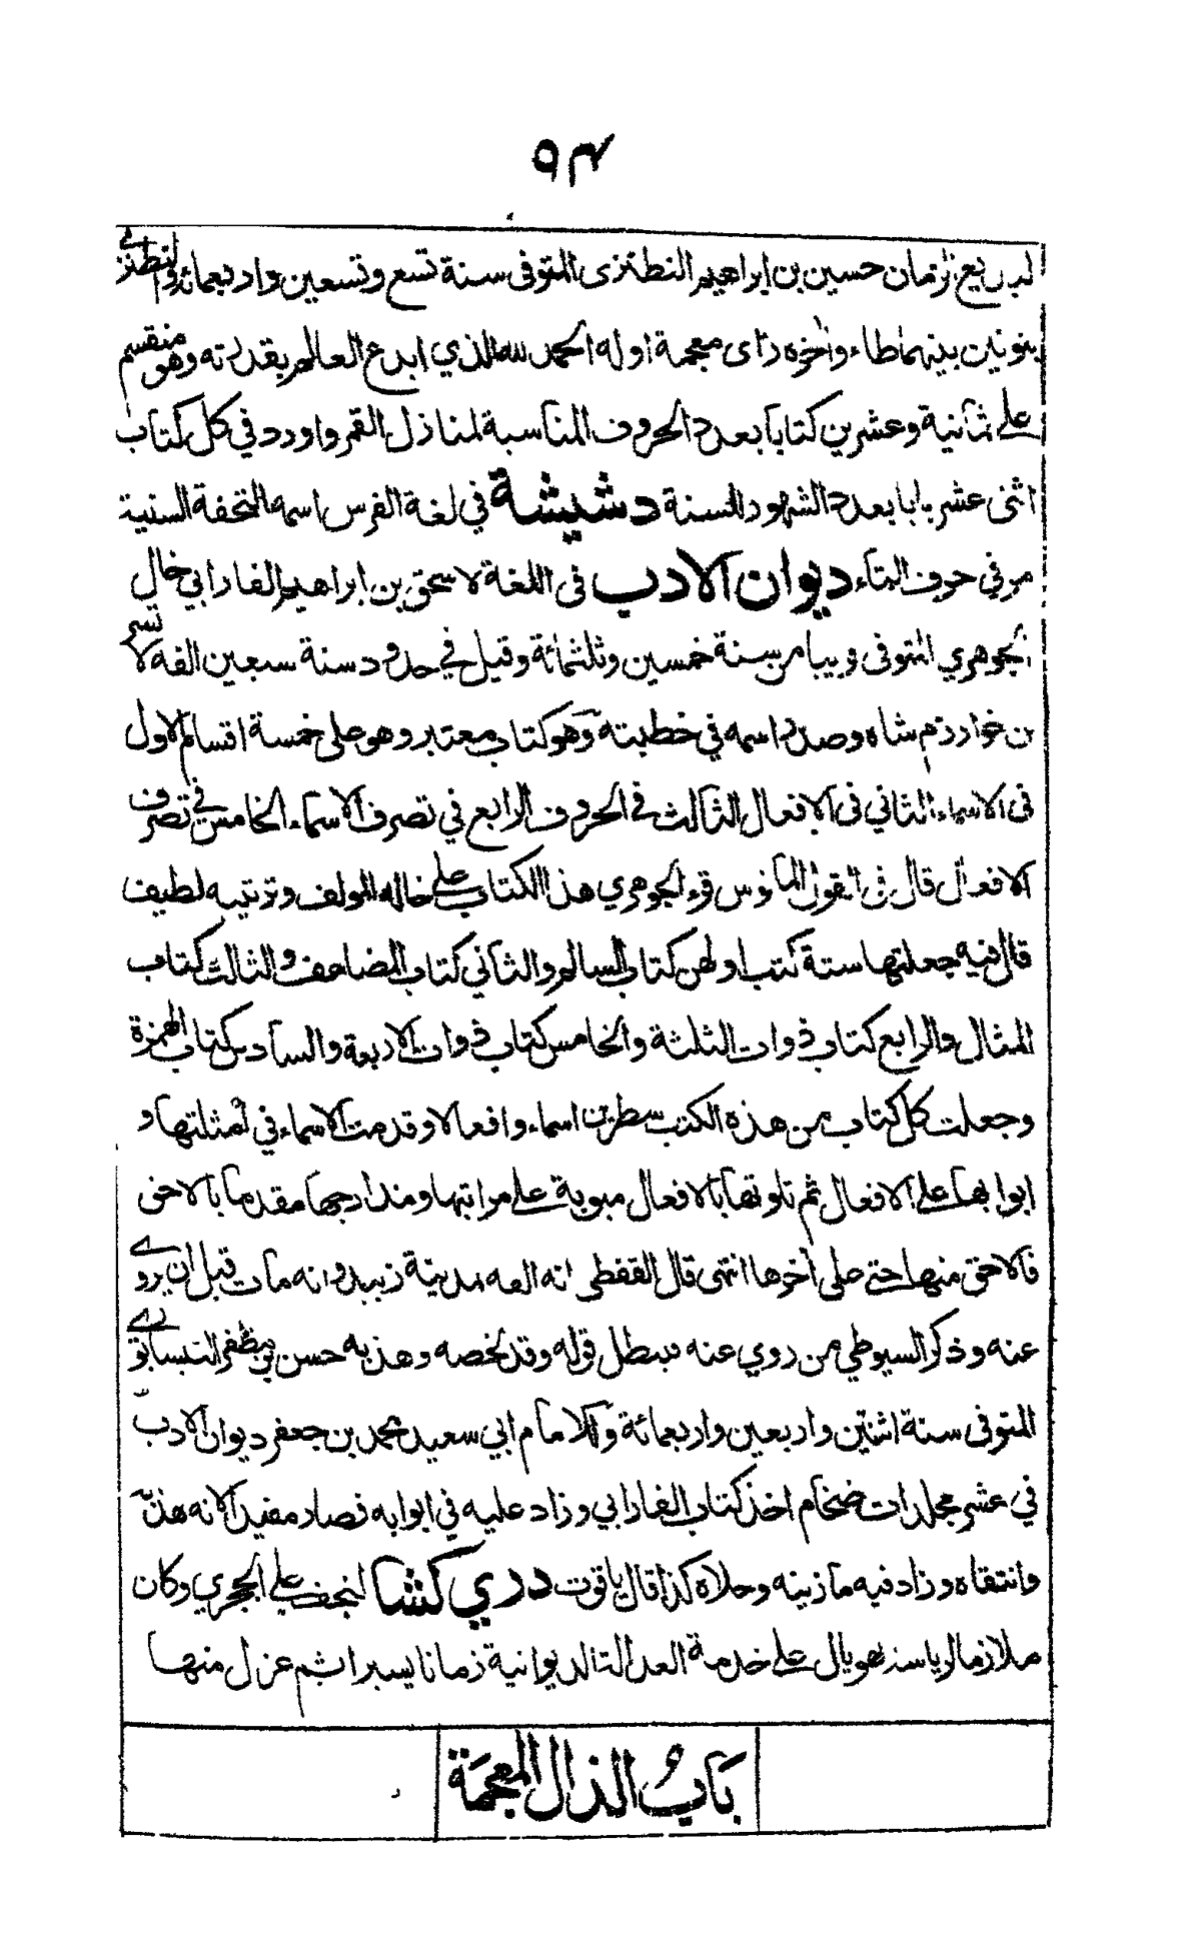 ٩٣
لبديع الزمان حسين بن ابراهيم النطنزى المتوفى سنة تسع وتسعين واربعمائة والنطنزي
بنونين بينهما طاء وآخره زاى معجمة اوله الحمد لله الذي ابدع العالم بقدرته وهو منقسم
على ثمانية وعشرين كتابا بعدد الحروف المناسبة لمنازل القمر واورد في كل كتاب
اثنى عشر بابا بعدد الشهور للسنة دشيشة في لغة الفرس اسمه التحفة السنية
مر في حرف التاء ديوان الادب فى اللغة لاسحق بن ابراهيم الفارابي خال
الجوهري المتوفى قريبا من سنة خمسين وثلثمائة وقيل في حدود سنة سبعين الفه لاتسر
بن خوارزم شاه وصدر اسمه في خطبته وهو كتاب معتبر وهو على خمسة اقسام الاول
فى الاسماء الثاني فى الافعال الثالث في الحروف الرابع في تصرف الاسماء الخامس في تصرف
الافعال قال فى القول المانوس قرء الجوهري هذا الكتاب على خاله المولف وترتيبه لطيف
قال فيه جعلتها ستة كتب اولهن كتاب السالم والثاني كتاب المضاعف والثالث كتاب
المثال والرابع كتاب ذوات الثلثة والخامس كتاب ذوات الاربعة والسادس كتاب الهمزة
وجعلت كل كتاب من هذه الكتب سطرين اسماء وافعالا وقدمت الاسماء في امثلتها و
ابوابها على الافعال ثم تلوتها بالافعال مبوبة على مراتبها ومدارجها مقدما بالاحق
فالاحق منها حتى على آخرها انتهى قال القفطى انه الفه بمدينة زبيد وانه مات قبل ان يروي
عنه وذكر السيوطي من روي عنه فبطل قوله وقد لخصه وهذبه حسن بن مظفر النيسابوري
المتوفى سنة اثنتين واربعين واربعمائة وللامام ابي سعيد محمد بن جعفر ديوان الادب
في عشر مجلدات ضخام اخذ كتاب الفارابي وزاد عليه في ابوابه فصار مفيدا لانه هذبه
وانتقاه وزاد فيه ما زينه وحلاه كذا قال ياقوت دري كشا لنجف علي الجحري وكان
ملازما لرياسة بهوپال على خدمة العدالت الديوانية زمانا يسيرا ثم عزل منها
باب الذال المعجمة